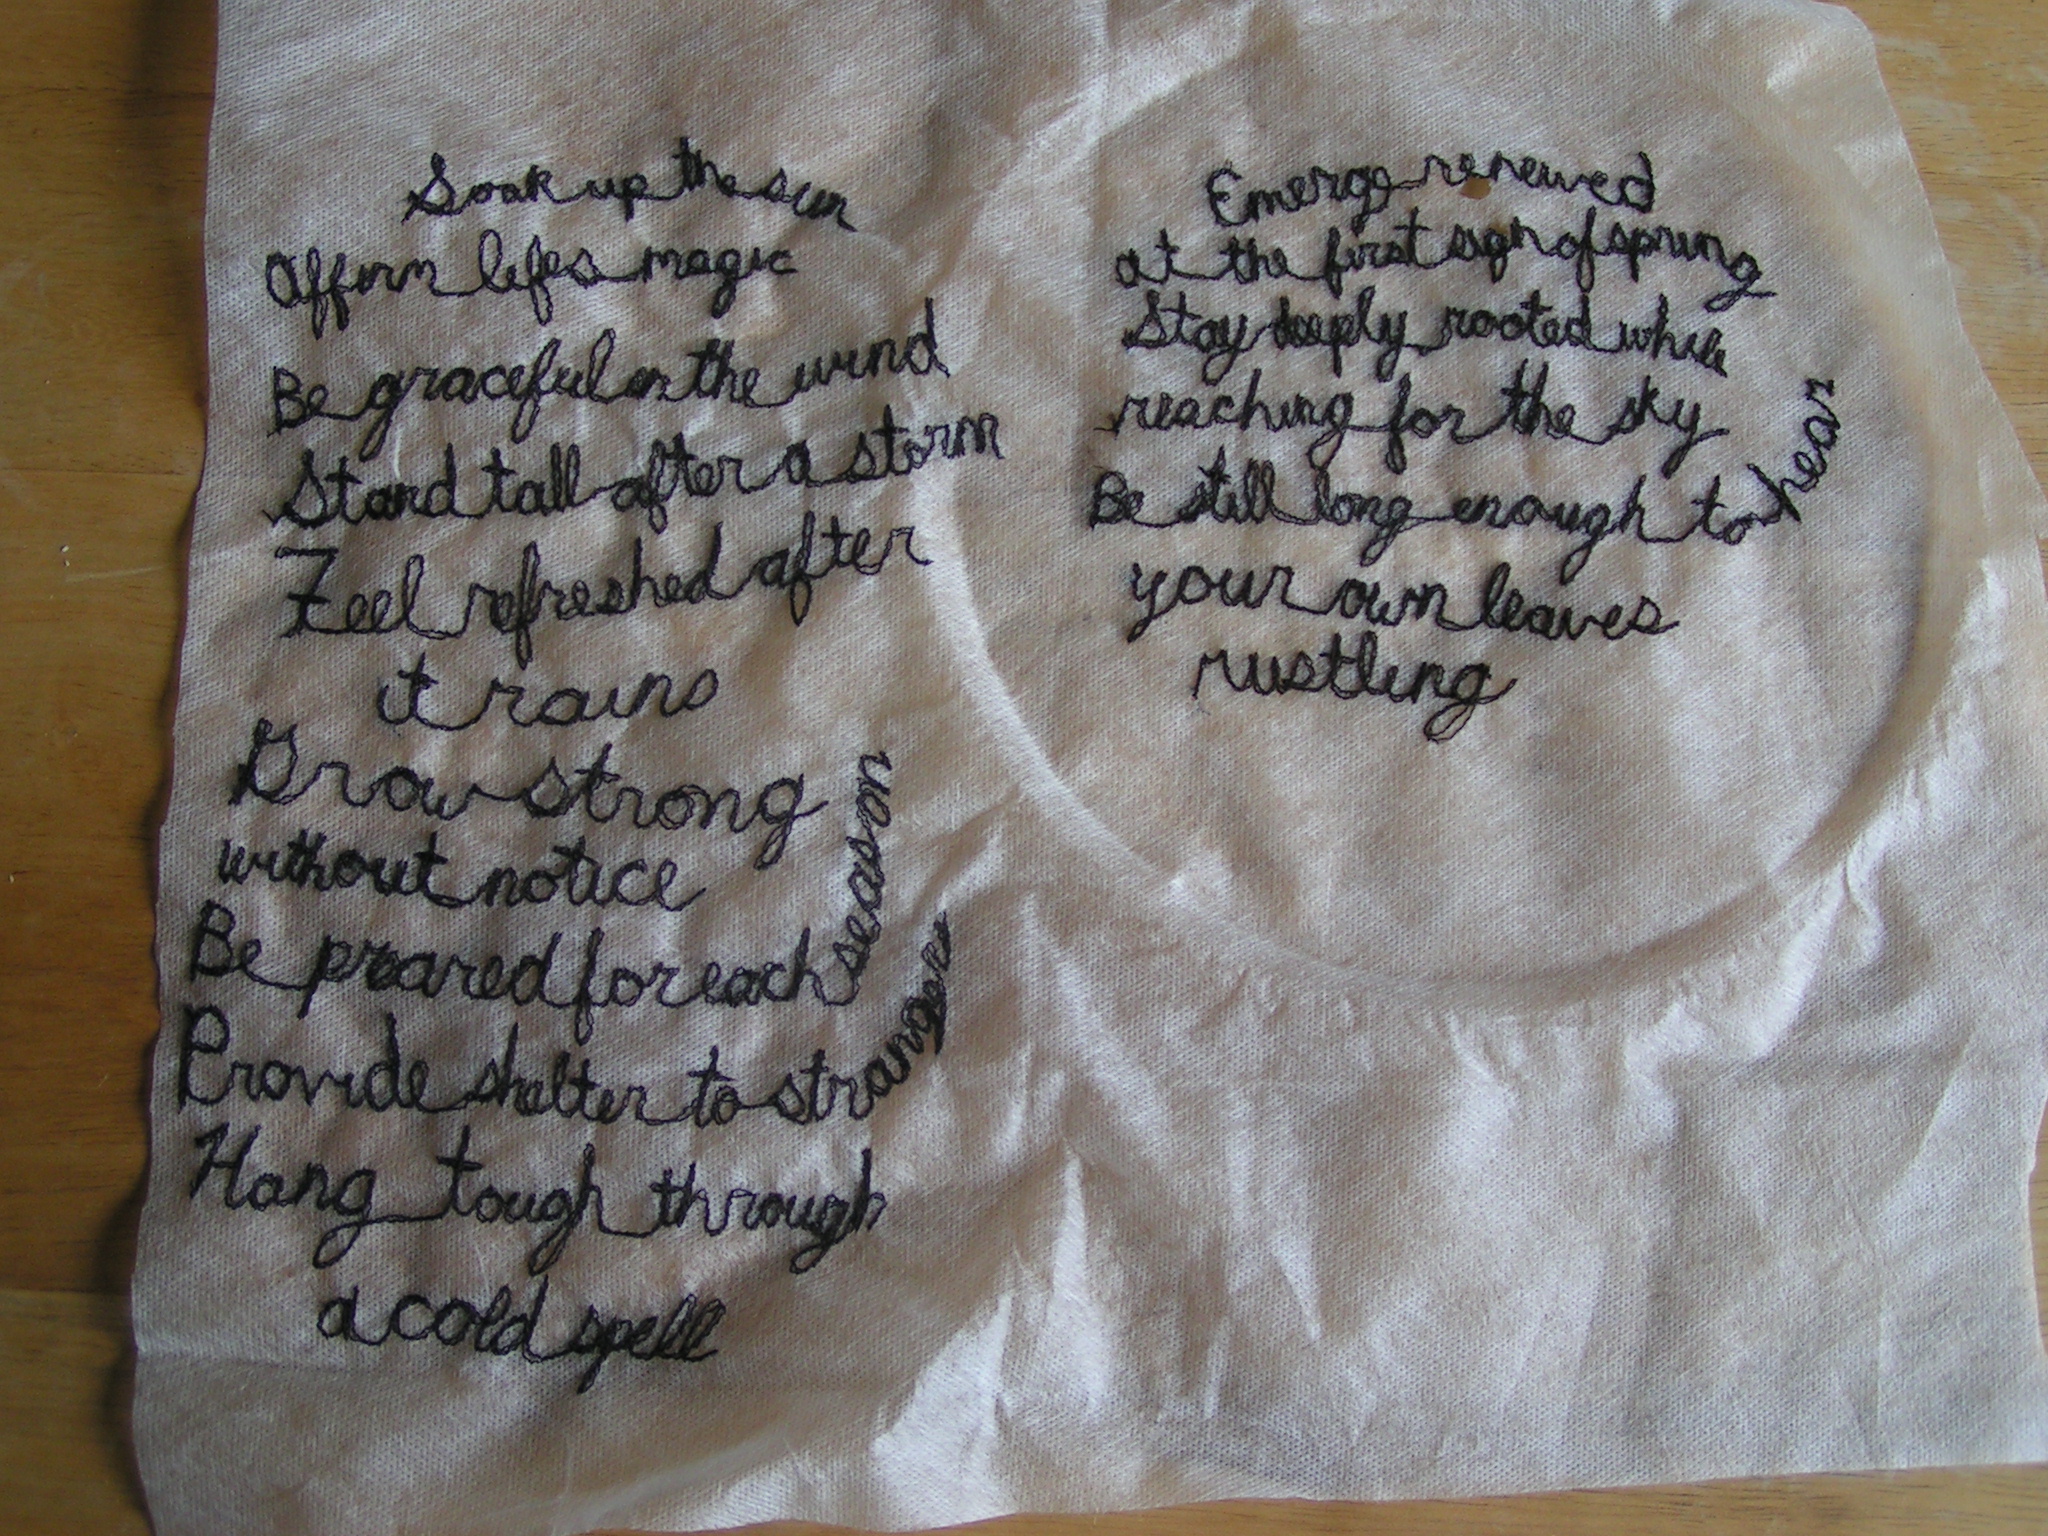 Soak up the sun
Affirm lifes magic
Be graceful in the wind
Stand tall after a storm
Feel refreshed after
it rains
Grow strong
without notice
Be preared for each season
Provide shelter to strangers
Hang tough through
a cold spell
Emerge renewed
at the first sign of spring
Stay deeply rooted while
reaching for the sky
Be still long enough to hear
your own leaves
rustling